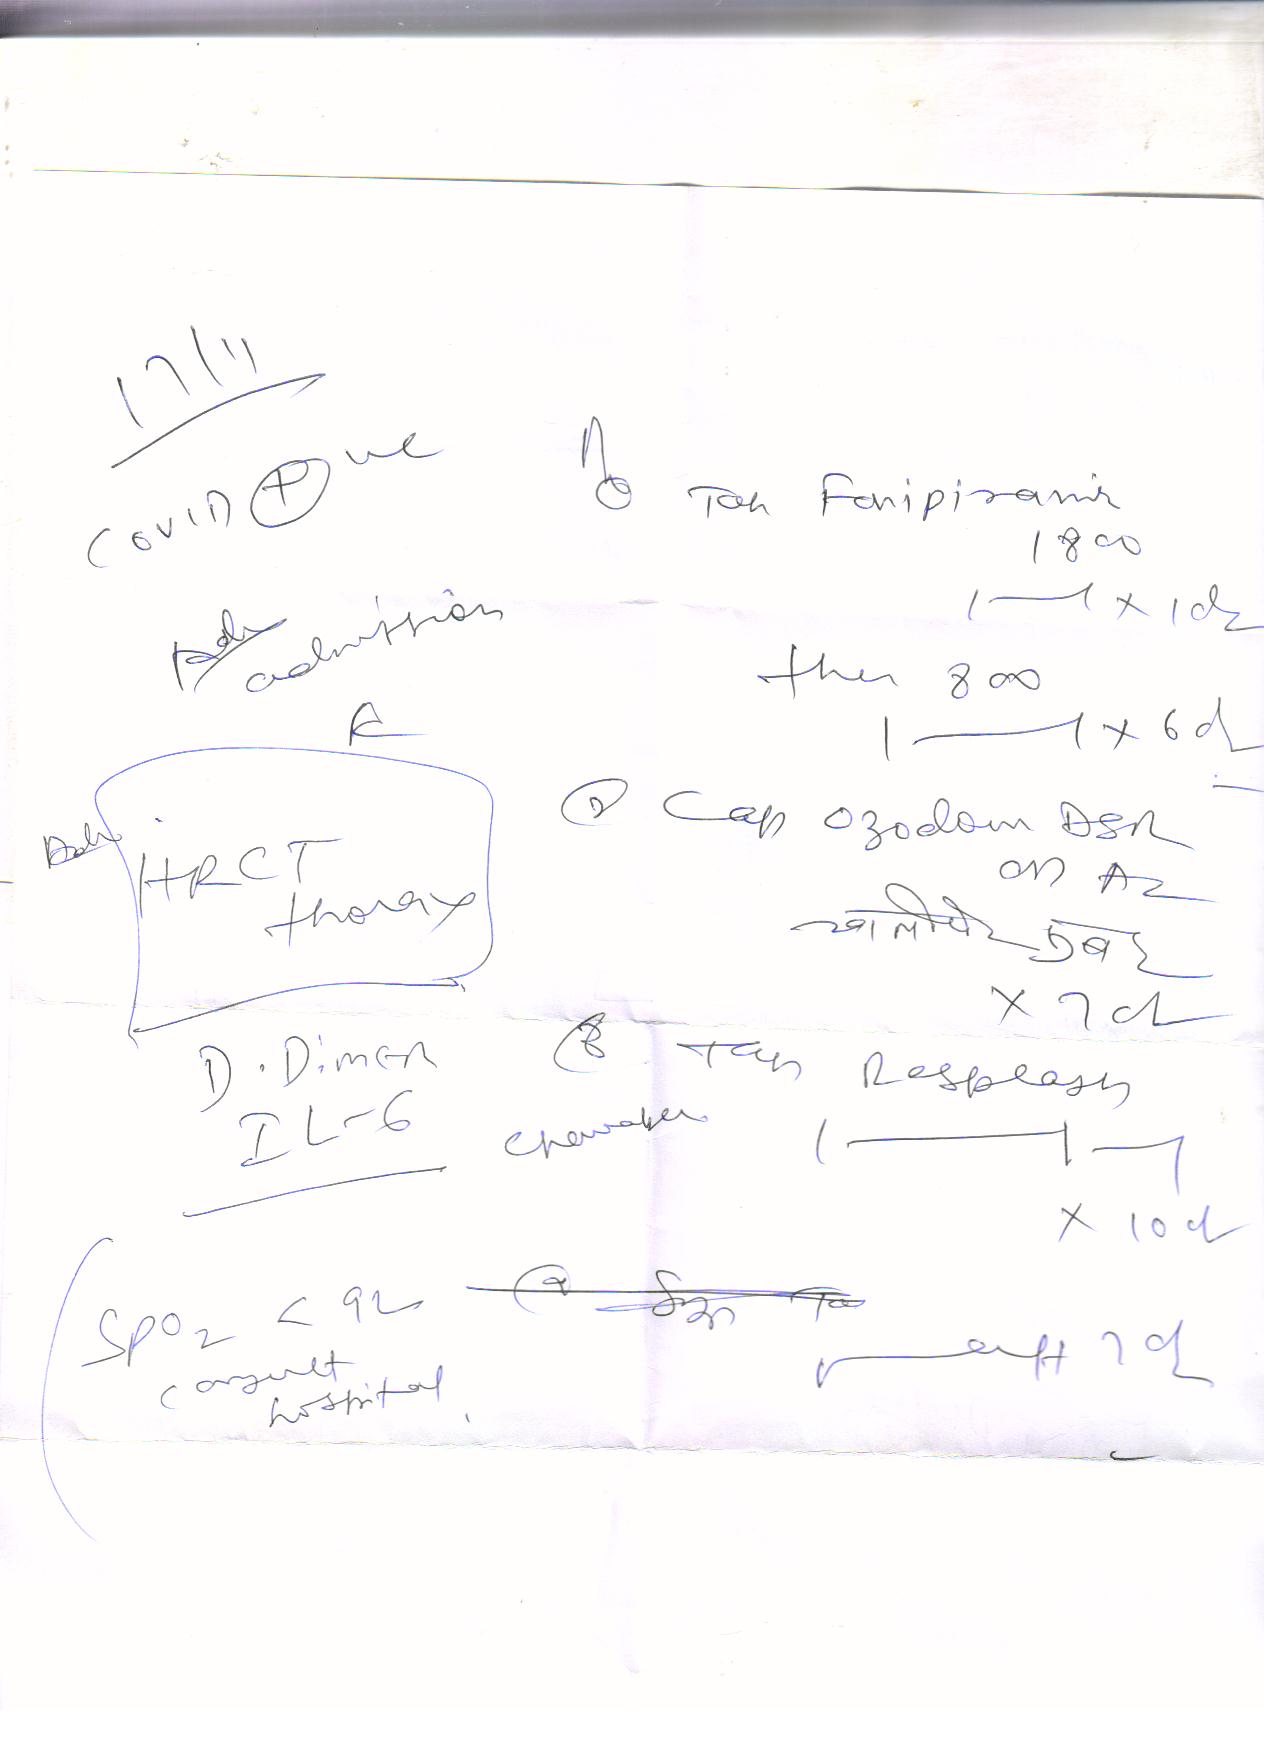 17/11
COVID ⊕ ve
Adv admission
HRCT
thorax
D.Dimer
IL-6
SPO2 < 92
consult
hospital
Tab Favipiravir
1800
1—1 x 1d
then 800
1—1 x 6d
② Cap Ozodom DSR
खालीपेट
x 7d
③ Tab
1—1—1
x 10d
7d